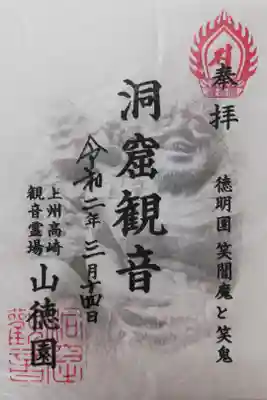 奉拝
徳明園 笑閻魔と笑鬼
洞窟観音
令和二年三月十四日
上州高崎
観音霊場
山徳園